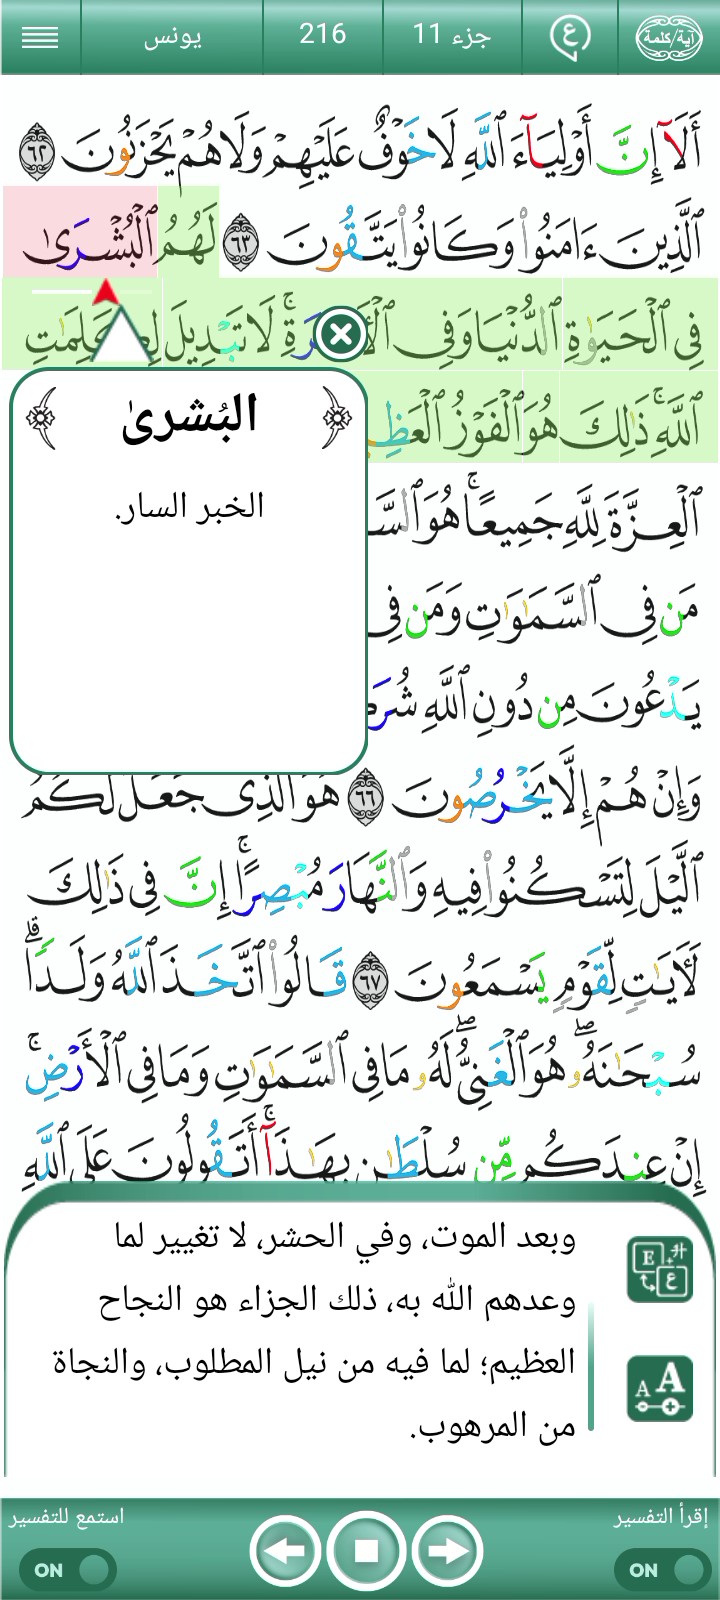 آية/كلمة
ع
جزء 11
216
يونس
أَلَآ إِنَّ أَوْلِيَآءَ ٱللَّهِ لَا خَوْفٌ عَلَيْهِمْ وَلَا هُمْ يَحْزَنُونَ ٦٢
ٱلَّذِينَ ءَامَنُوا۟ وَكَانُوا۟ يَتَّقُونَ ٦٣ لَهُمُ ٱلْبُشْرَىٰ
فِى ٱلْحَيَوٰةِ ٱلدُّنْيَا وَفِى لَا تَبْدِيلَ
ٱللَّهِ ۚ ذَٰلِكَ هُوَ ٱلْفَوْزُ
البُشرىٰ
الخبر السار.
ٱلْعِزَّةَ لِلَّهِ جَمِيعًا ۚ هُوَ
مَن فِى ٱلسَّمَٰوَٰتِ وَمَن فِى
يَدْعُونَ مِن دُونِ ٱللَّهِ
وَإِنْ هُمْ إِلَّا يَخْرُصُونَ ٦٦ هُوَ ٱلَّذِى جَعَلَ لَكُمُ
ٱلَّيْلَ لِتَسْكُنُوا۟ فِيهِ وَٱلنَّهَارَ مُبْصِرًا ۚ إِنَّ فِى ذَٰلِكَ
لَـَٔايَٰتٍ لِّقَوْمٍ يَسْمَعُونَ ٦٧ قَالُوا۟ ٱتَّخَذَ ٱللَّهُ وَلَدًا ۗ
سُبْحَٰنَهُۥ ۖ هُوَ ٱلْغَنِىُّ ۖ لَهُۥ مَا فِى ٱلسَّمَٰوَٰتِ وَمَا فِى ٱلْأَرْضِ ۚ
إِنْ عِندَكُم مِّن سُلْطَٰنٍۭ بِهَٰذَآ ۚ أَتَقُولُونَ عَلَى ٱللَّهِ
وبعد الموت، وفي الحشر، لا تغيير لما
وعدهم الله به، ذلك الجزاء هو النجاح
العظيم؛ لما فيه من نيل المطلوب، والنجاة
من المرهوب.
إقرأ التفسير
ON
استمع للتفسير
ON